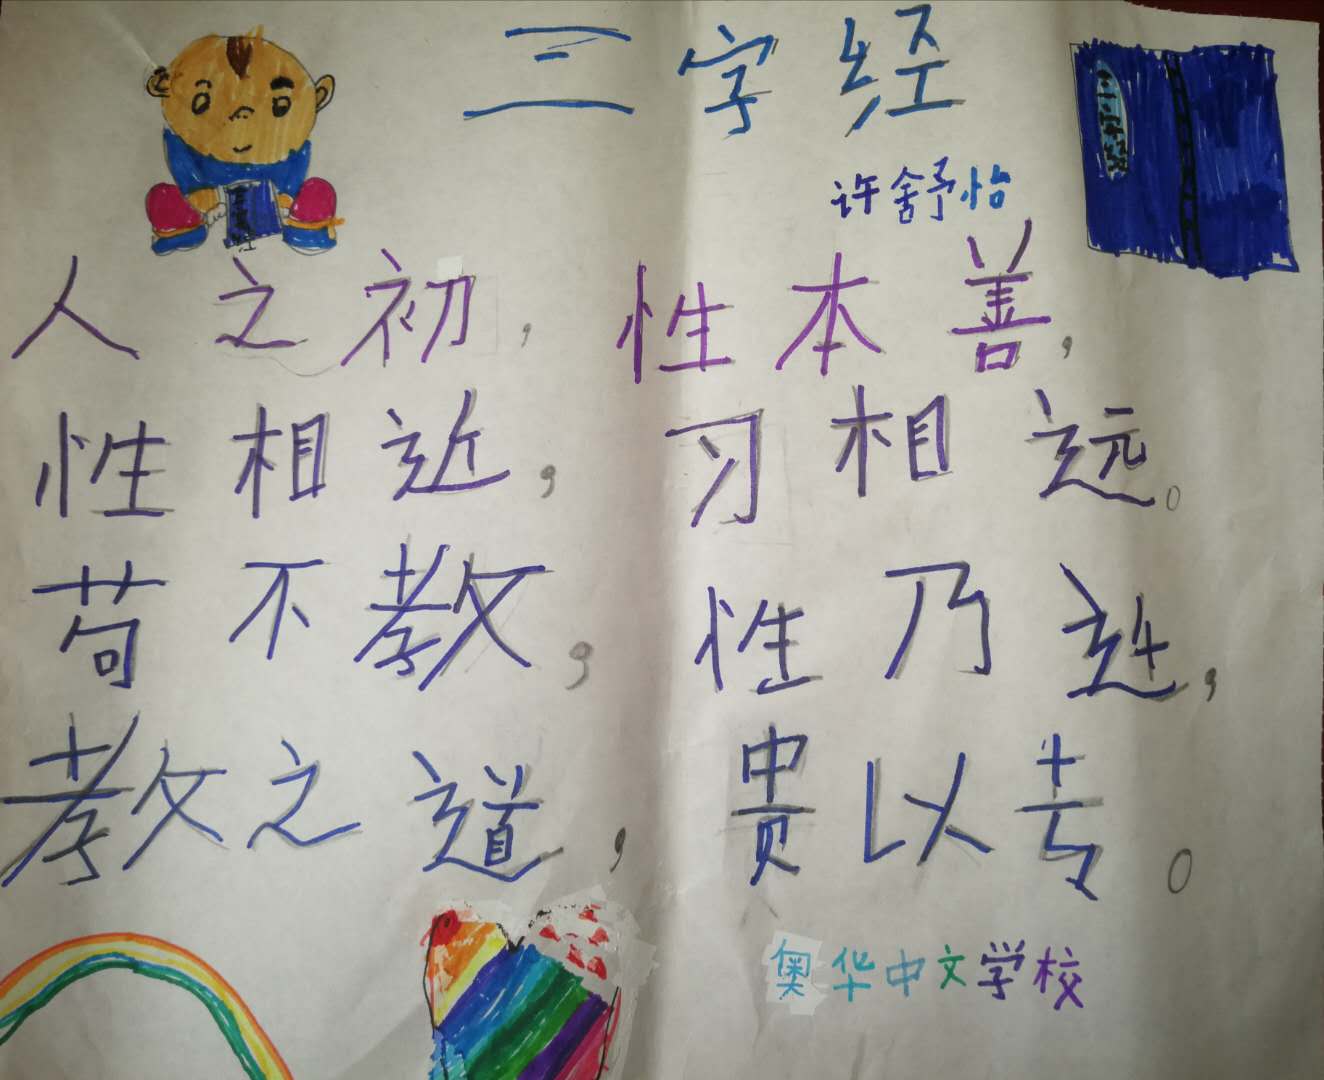 三字经
三字经
三字经
许舒怡
人之初，性本善，
性相近，习相远。
苟不教，性乃迁，
教之道，贵以专。
奥华中文学校